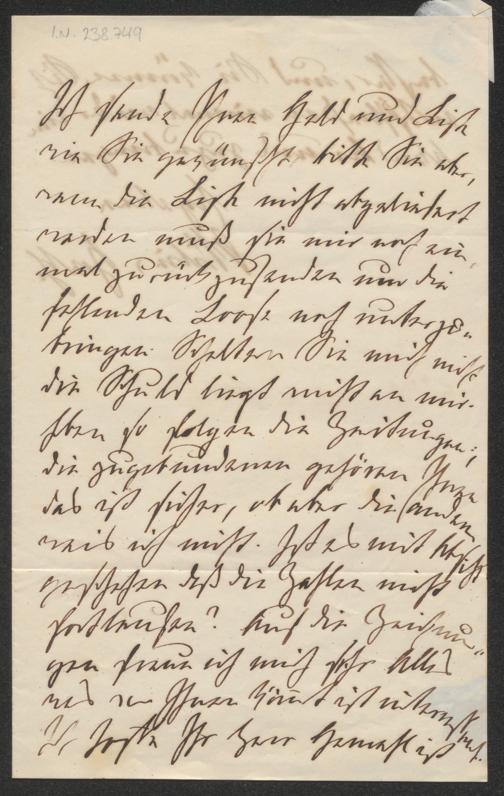 I.N. 238.749
Ich sende Ihnen Geld und Liste
wie Sie gewünscht bitte Sie aber,
wenn die Liste nicht abgeliefert
werden muß sie mir noch ein
mal zurückzusenden um die
fehlenden Loose noch unterzu-
bringen. Schelten Sie mich nicht
die Schuld liegt nicht an mir.
Eben so folgen die Zeitungen;
die zugebundenen gehören Ihnen
das ist sicher, ob aber die andern
weis ich nicht. Ist es mit Absicht
geschehen daß die Zahlen nicht
fortlaufen? Auf die Zeichnun-
gen freue ich mich sehr Alles
was von Ihnen kömt ist interessant.
Ich hoffe Ihr Herr Gemahl ist